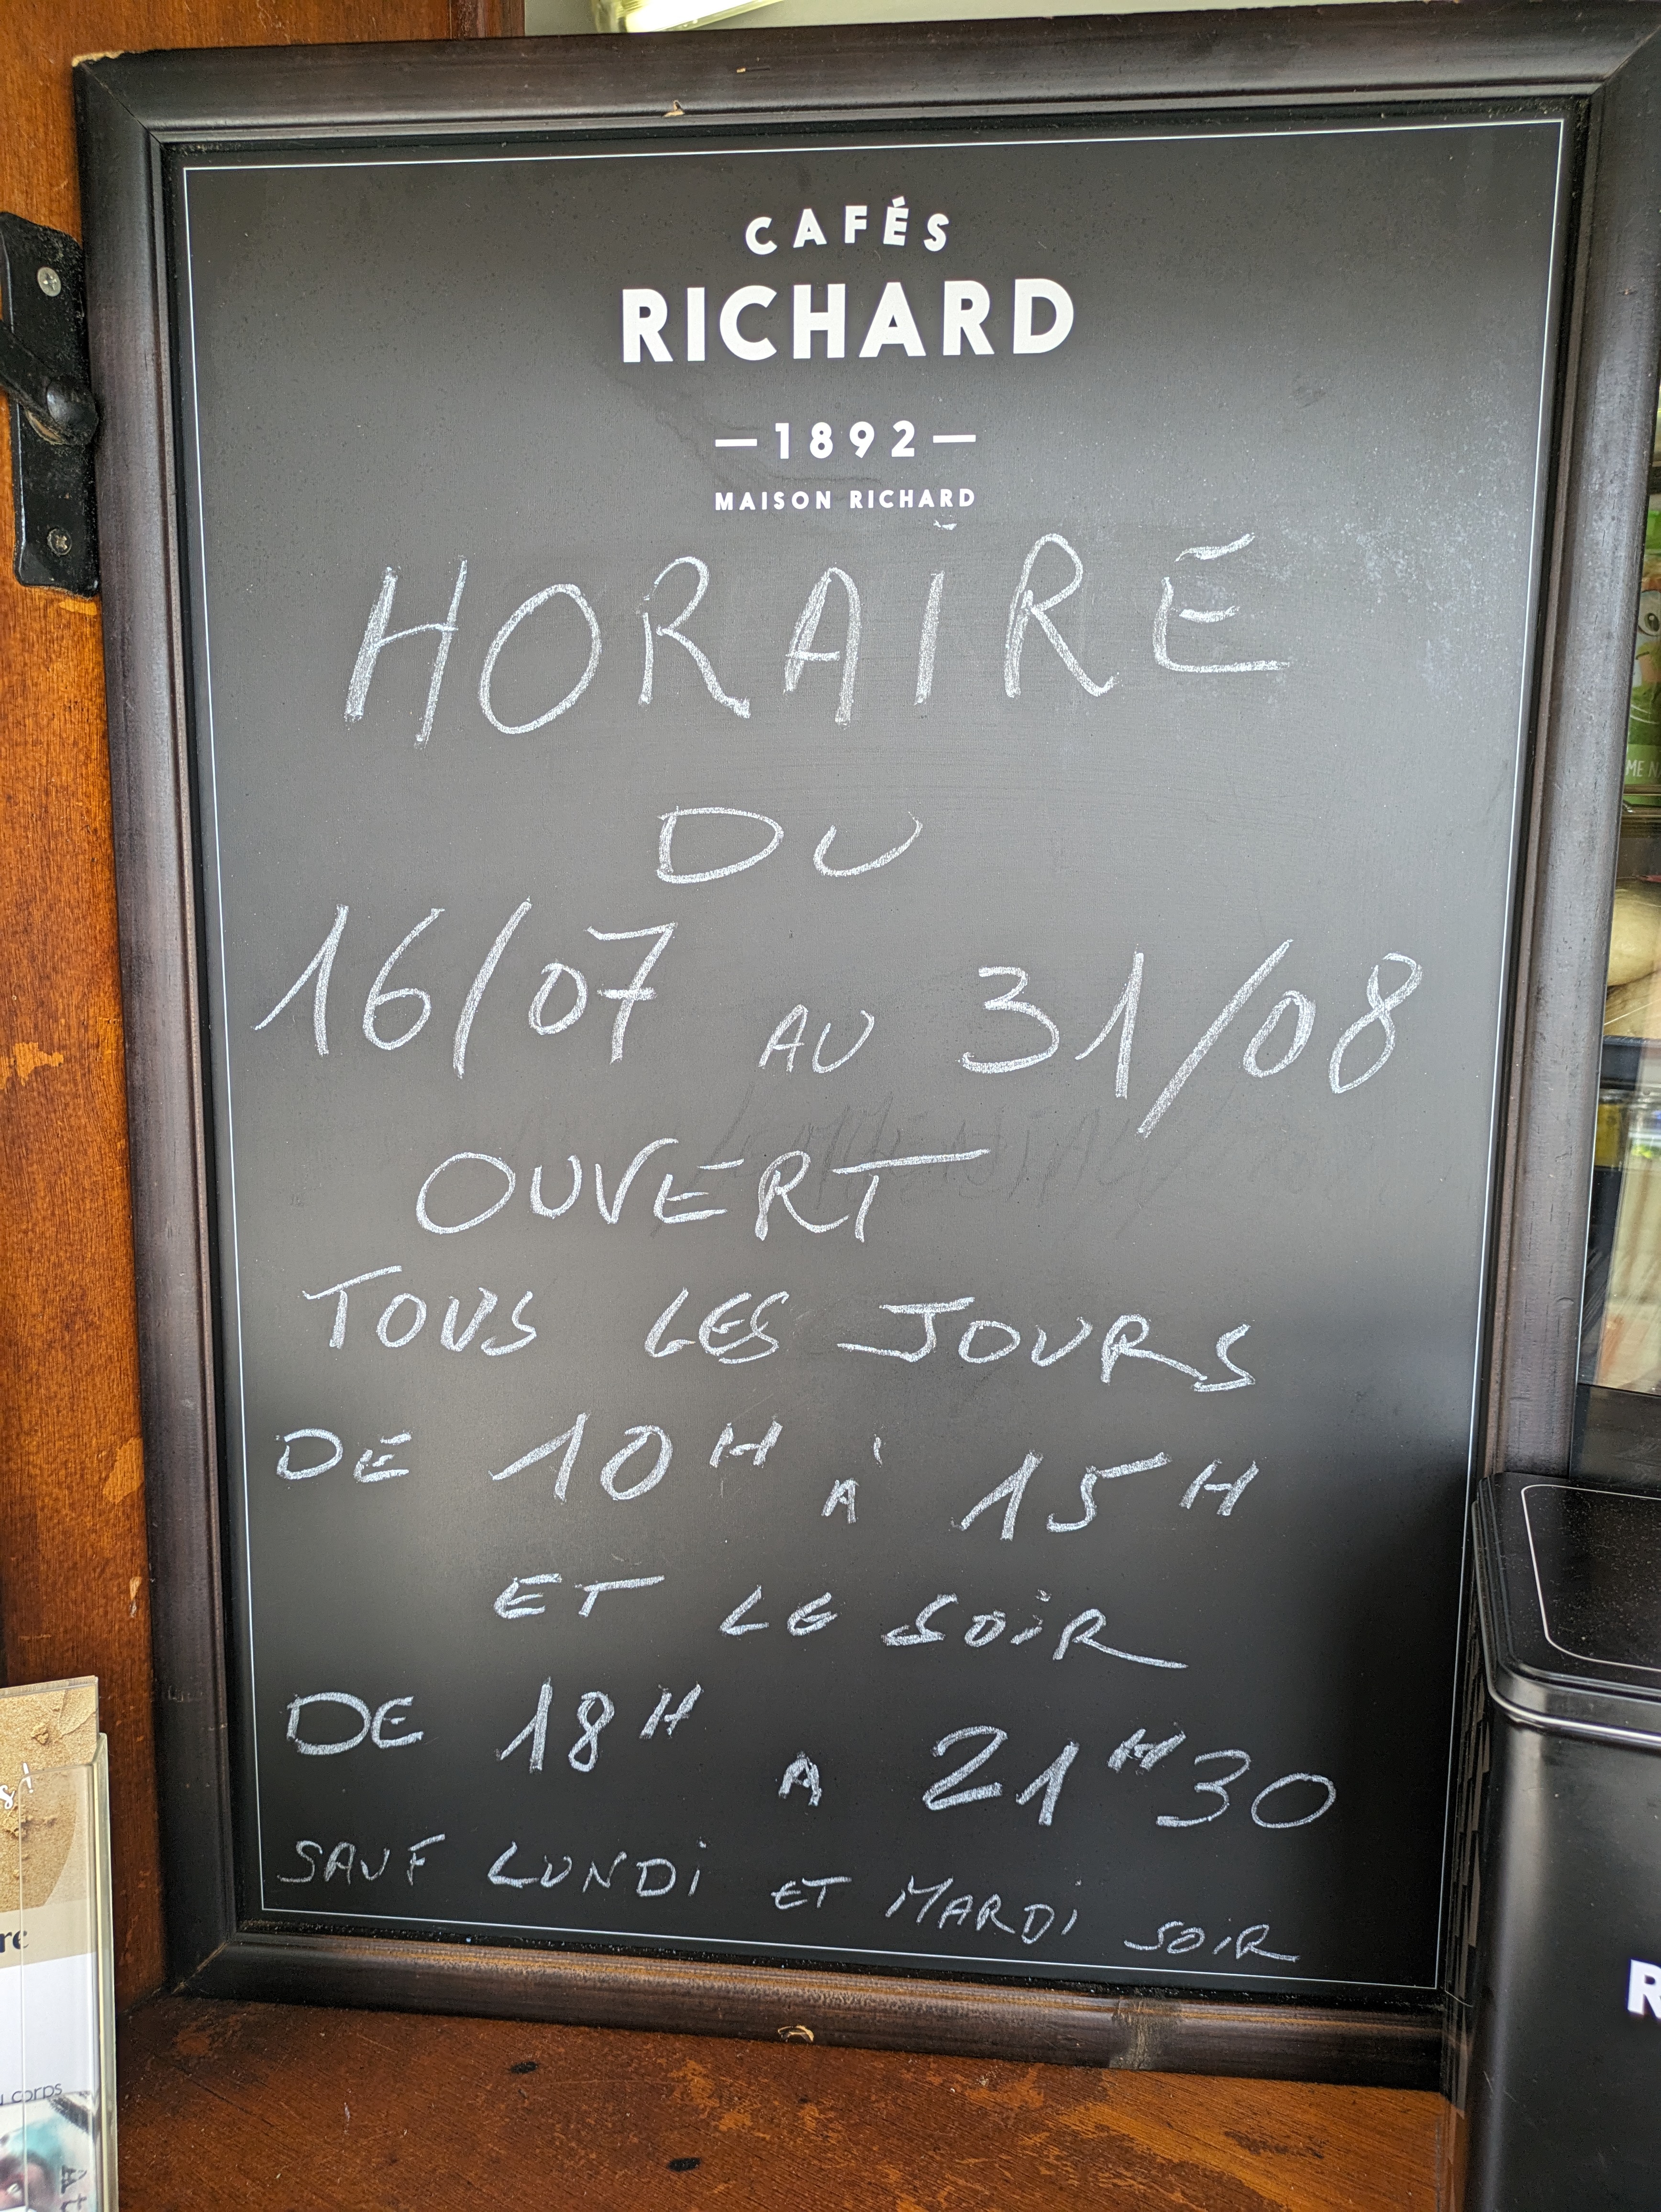 CAFÉS
RICHARD
—1892—
MAISON RICHARD
HORAIRE
DU
16/07 AU 31/08
OUVERT
TOUS LES JOURS
DE 10H À 15H
ET LE SOIR
DE 18H A 21H30
SAUF LUNDI ET MARDI SOIR
re
corps
ME N
R